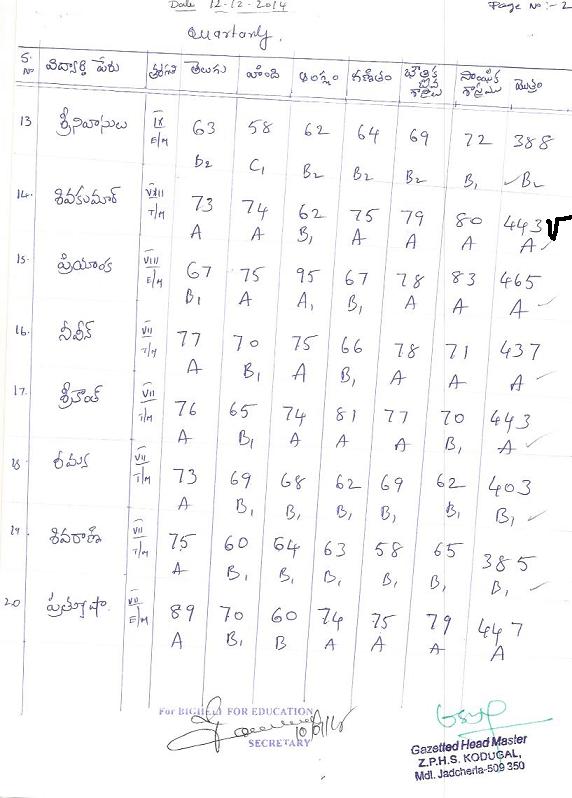 Date 12-12-2014 Page No:- 2
Quartarly.
S.No విద్యార్థి పేరు తరగతి తెలుగు హింది ఆంగ్లం గణితం భౌతిక శాస్త్రం సాంఘిక శాస్త్రము మొత్తం
13 శ్రీనివాసులు IX E/M 63 58 62 64 69 72 388
B2 C1 B2 B2 B2 B1 B2
14. శివకుమార్ VIII T/M 73 74 62 75 79 80 443
A A B1 A A A A
15. ప్రియాంక VIII E/M 67 75 95 67 78 83 465
B1 A A1 B1 A A A
16. నవీన్ VII T/M 77 70 75 66 78 71 437
A B1 A B1 A A A
17. శ్రీకాంత్ VII T/M 76 65 74 81 77 70 443
A B1 A A A B1 A
18 VII T/M 73 69 68 62 69 62 403
A B1 B1 B1 B1 B1 B1
19 శివరాణి VII T/M 75 60 64 63 58 65 385
A B1 B1 B1 B1 B1 B1
20 ప్రత్యూషా VII E/M 89 70 60 74 75 79 447
A B1 B A A A A
For BIGHELP FOR EDUCATION
SECRETARY
Gazetted Head Master
Z.P.H.S. KODUGAL,
Mdl. Jadcherla-509 350